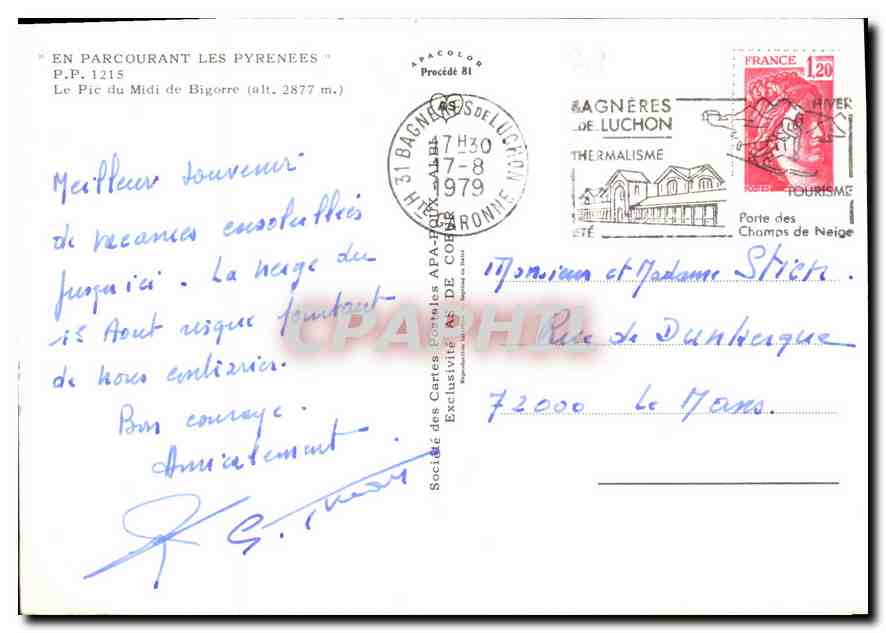 " EN PARCOURANT LES PYRENEES "
P.P. 1215
Le Pic du Midi de Bigorre (alt. 2877 m.)
APACOLOR
Procédé 81
Meilleur souvenir
de vacances ensoleillées
jusqu'ici. La neige du
15 Aout risque pourtant
de nous contrarier.
Bon courage.
Amicalement
G.
Société des Cartes Postales APA-POUX - ALBI
Exclusivité AS DE COEUR
AS
31 BAGNERES DE LUCHON
17H30
17-8
1979
Hte GARONNE
BAGNÈRES
DE LUCHON
THERMALISME
ÉTÉ
HIVER
TOURISME
Porte des
Champs de Neige
FRANCE
1,20
Monsieur et Madame
Rue de Dunkerque
72000 Le Mans.
CPAPHIL